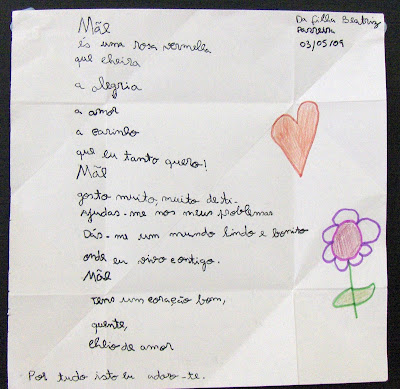 Mãe
és uma rosa vermelha
que cheira
a alegria
a amor
a carinho
que eu tanto quero!
Mãe
gosto muito, muito de ti.
Ajudas-me nos meus problemas
Dás-me um mundo lindo e bonito
onde eu vivo contigo.
Mãe
Tens um coração bom,
quente,
cheio de amor
Por tudo isto eu adoro-te.
Da filha Beatriz
Parreira
03/05/09